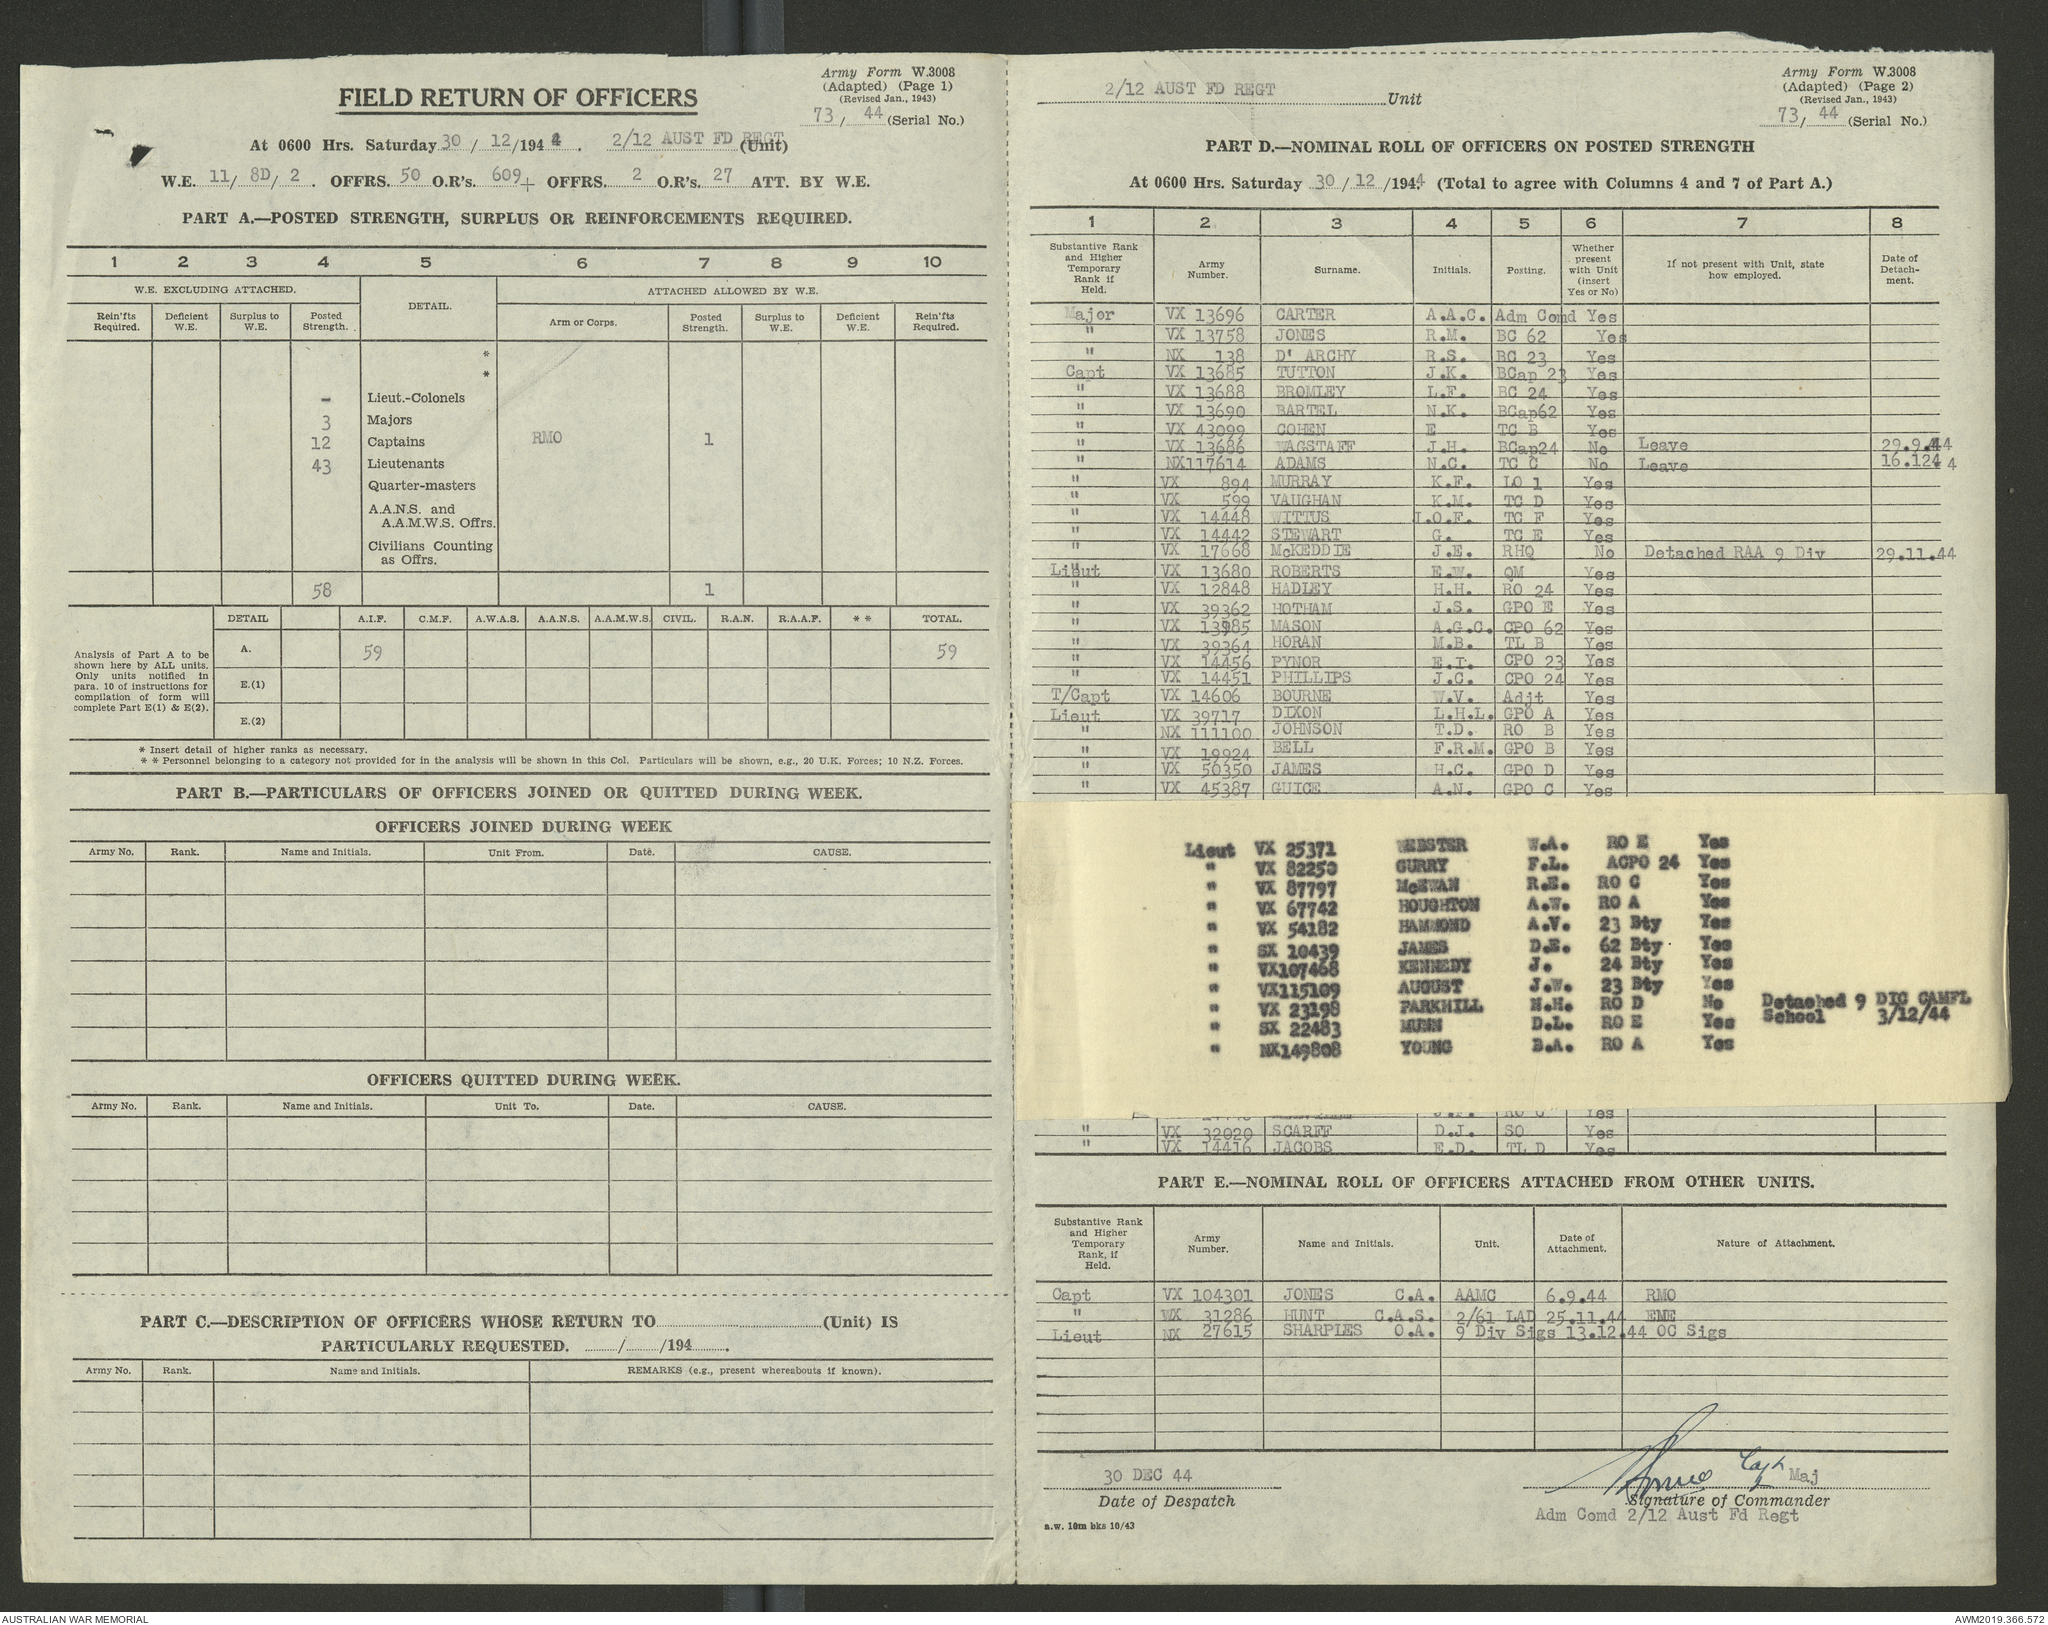 Army Form W.3008
(Adapted) (Page 1)
(Revised Jan., 1943)
73/ 44 (Serial No.)
FIELD RETURN OF OFFICERS
At 0600 Hrs. Saturday 30 / 12 /1944. 2/12 AUST FD REGT (Unit)
W.E. 11/ 8D/ 2 . OFFRS. 50 O.R's. 609+ OFFRS. 2 O.R's. 27 ATT. BY W.E.
PART A.—POSTED STRENGTH, SURPLUS OR REINFORCEMENTS REQUIRED.
1 2 3 4 5 6 7 8 9 10
W.E. EXCLUDING ATTACHED. DETAIL. ATTACHED ALLOWED BY W.E.
Rein'fts Required. Deficient W.E. Surplus to W.E. Posted Strength. Arm or Corps. Posted Strength. Surplus to W.E. Deficient W.E. Rein'fts Required.
*
*
- Lieut.-Colonels
3 Majors
12 Captains RMO 1
43 Lieutenants
Quarter-masters
A.A.N.S. and
A.A.M.W.S. Offrs.
Civilians Counting
as Offrs.
58 1
DETAIL A.I.F. C.M.F. A.W.A.S. A.A.N.S. A.A.M.W.S. CIVIL. R.A.N. R.A.A.F. * * TOTAL.
Analysis of Part A to be
shown here by ALL units.
Only units notified in
para. 10 of instructions for
compilation of form will
complete Part E(1) & E(2).
A. 59 59
E.(1)
E.(2)
* Insert detail of higher ranks as necessary.
* * Personnel belonging to a category not provided for in the analysis will be shown in this Col. Particulars will be shown, e.g., 20 U.K. Forces; 10 N.Z. Forces.
PART B.—PARTICULARS OF OFFICERS JOINED OR QUITTED DURING WEEK.
OFFICERS JOINED DURING WEEK
Army No. Rank. Name and Initials. Unit From. Date. CAUSE.
OFFICERS QUITTED DURING WEEK.
Army No. Rank. Name and Initials. Unit To. Date. CAUSE.
PART C.—DESCRIPTION OF OFFICERS WHOSE RETURN TO (Unit) IS
PARTICULARLY REQUESTED. / /194 .
Army No. Rank. Name and Initials. REMARKS (e.g., present whereabouts if known).
2/12 AUST FD REGT Unit
Army Form W.3008
(Adapted) (Page 2)
(Revised Jan., 1943)
73/ 44 (Serial No.)
PART D.—NOMINAL ROLL OF OFFICERS ON POSTED STRENGTH
At 0600 Hrs. Saturday 30 / 12 /1944 (Total to agree with Columns 4 and 7 of Part A.)
1 2 3 4 5 6 7 8
Substantive Rank and Higher Temporary Rank if Held. Army Number. Surname. Initials. Posting. Whether present with Unit (insert Yes or No) If not present with Unit, state how employed. Date of Detach-ment.
Major VX 13696 CARTER A.A.C. Adm Comd Yes
" VX 13758 JONES R.M. BC 62 Yes
" NX 138 D' ARCHY R.S. BC 23 Yes
Capt VX 13685 TUTTON J.K. BCap 23 Yes
" VX 13688 BROMLEY L.F. BC 24 Yes
" VX 13690 BARTEL N.K. BCap62 Yes
" VX 43099 COHEN E TC B Yes
" VX 13686 WAGSTAFF J.H. BCap24 No Leave 29.9.44
" NX117614 ADAMS N.C. TC C No Leave 16.1244
" VX 894 MURRAY K.F. LO 1 Yes
" VX 599 VAUGHAN K.M. TC D Yes
" VX 14448 WITTUS L.O.F. TC F Yes
" VX 14442 STEWART G. TC E Yes
" VX 17668 McKEDDIE J.E. RHQ No Detached RAA 9 Div 29.11.44
Lieut VX 13680 ROBERTS E.W. QM Yes
" VX 12848 HADLEY H.H. RO 24 Yes
" VX 39362 HOTHAM J.S. GPO E Yes
" VX 13985 MASON A.G.C. CPO 62 Yes
" VX 39364 HORAN M.B. TL B Yes
" VX 14456 PYNOR E.I. CPO 23 Yes
" VX 14451 PHILLIPS J.C. CPO 24 Yes
T/Capt VX 14606 BOURNE W.V. Adjt Yes
Lieut VX 39717 DIXON L.H.L. GPO A Yes
" NX 111100 JOHNSON T.D. RO B Yes
VX 19924 BELL F.R.M. GPO B Yes
" VX 50350 JAMES H.C. GPO D Yes
" VX 45387 GUICE A.N. GPO C Yes
Lieut VX 25371 WEBSTER W.A. RO E Yes
" VX 82250 GURRY F.L. ACPO 24 Yes
" VX 87797 McEWAN R.E. RO C Yes
" VX 67742 HOUGHTON A.W. RO A Yes
" VX 54182 HAMMOND A.V. 23 Bty Yes
" SX 10439 JAMES D.E. 62 Bty Yes
" VX107468 KENNEDY J. 24 Bty Yes
" VX115109 AUGUST J.W. 23 Bty Yes
" VX 23198 PARKHILL H.H. RO D No Detached 9 DIC CAMFL
School 3/12/44
" SX 22483 MUNN D.L. RO E Yes
" NX149808 YOUNG B.A. RO A Yes
Yes
" VX 32020 SCARFF D.J. SO Yes
" VX 14416 JACOBS E.D. TL D Yes
PART E.—NOMINAL ROLL OF OFFICERS ATTACHED FROM OTHER UNITS.
Substantive Rank and Higher Temporary Rank, if Held. Army Number. Name and Initials. Unit. Date of Attachment. Nature of Attachment.
Capt VX 104301 JONES C.A. AAMC 6.9.44 RMO
" WX 31286 HUNT C.A.S. 2/61 LAD 25.11.44 EME
Lieut NX 27615 SHARPLES O.A. 9 Div Sigs 13.12.44 OC Sigs
30 DEC 44 Capt Maj
Date of Despatch Signature of Commander
Adm Comd 2/12 Aust Fd Regt
a.w. 10m bks 10/43
AUSTRALIAN WAR MEMORIAL
AWM2019.366.572